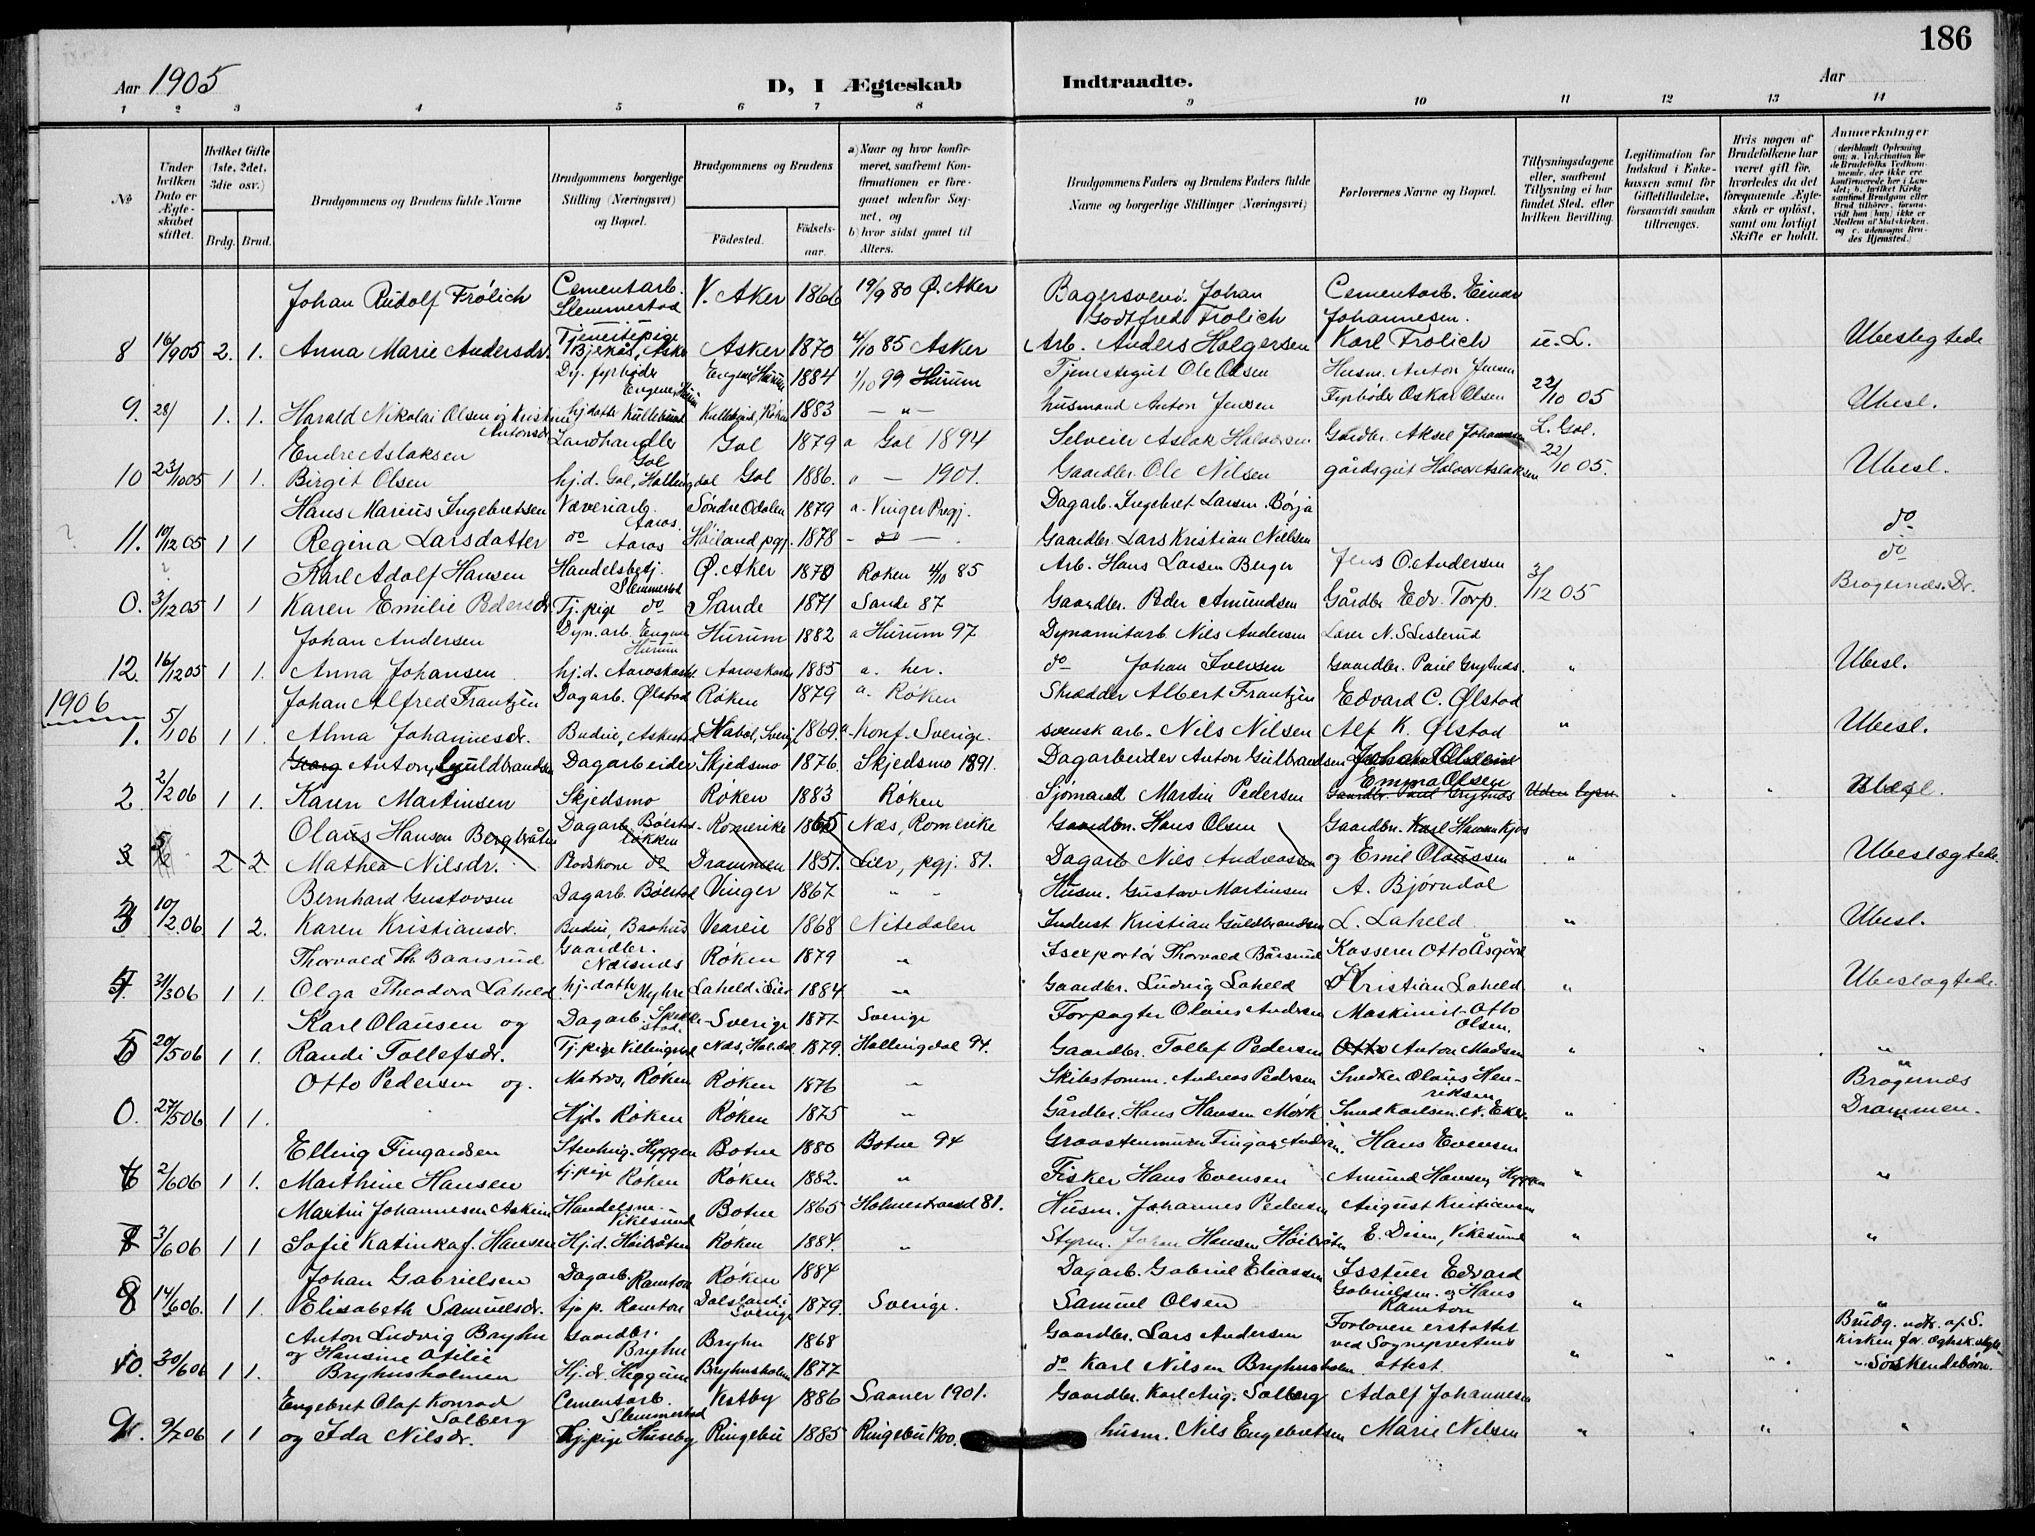 186
Aar 1905
D, I Ægteskab
Indtraadte.
Aar
1 2 3 4 5 6 7 8 9 10 11 12 13 14
No
Under hvilken Dato er Ægteskabet stiftet.
Hvilket Gifte (1ste, 2det, 3die osv.)
Brdg. Brud.
Brudgommens og Brudens fulde Navne
Brudgommens borgerlige Stilling (Næringsvei) og Bopæl.
Brudgommens og Brudens
Födested.
Födselsaar.
a) Naar og hvor konfirmeret, saafremt Konfirmationen er foregaaet udenfor Sognet, og
b) hvor sidst gaaet til Alters.
Brudgommens Faders og Brudens Faders fulde Navne og borgerlige Stillinger (Næringsvei)
Forlovernes Navne og Bopæl.
Tillysningsdagene eller, saafremt Tillysning ei har fundet Sted, efter hvilken Bevilling.
Legitimation for Indskud i Enkekassen samt for Giftetilladelse, forsaavidt saadan tiltrænges.
Hvis nogen af Brudefolkene har været gift før, hvorledes da det foregaaende Ægteskab er opløst, samt om lovligt Skifte er holdt.
Anmerkninger
Johan Rudolf Frölich Cementarb. Slemmestad V. Aker 1866 19/9 80 Ø. Aker Bagersvend Johan Godtfred Frölich Cementarb. Einar Johannesen.
8 16/9 05 2. 1. Anna Marie Andersdr. Tjenestepige Bjerkås, Asker Asker 1870 4/10 85 Asker Arb. Anders Holgersen Karl Frölich u. L. Ubeslegtede
Dy. fyrbøder Engene Hurum Engene Hurum 1884 1/10 99 Hurum Tjenestegut Ole Olsen Husm. Anton Jensen
9. 28/ 1. 1. Harald Nikolai Olsen og Kristine Antonsdr. hj. datter Kullebund Kullebund, Røken 1883 — " — husmand Anton Jensen Fyrbøder Oskar Olsen 22/10 05 Ubesl.
Endre Aslaksen Landhandler Gol Gol 1879 a Gol 1894 Selveier Aslak Halvorsen Gårdbr. Aksel Johannsen L. Gol.
10 23/10 05 1 1 Birgit Olsen hj. d. Gol, Hallingdal Gol 1886. " — 1901. Gaardbr. Ole Nilsen gårdsgut Halvor Aslaksen 22/10 05. Ubesl.
Hans Marius Ingebretsen Væveriarb. Aaros. Söndre Odalen 1879 a. Vinger Pregj. Dagarb. Ingebret Larsen Börja
11. 10/12 05 1 1 Regina Larsdatter do Aaros Höiland pgj. 1878 - do - Gaardbr. Lars Kristian Nielsen do
Karl Adolf Hansen Handelsbetj. Slemmestad Ø. Aker 1870 Røken 4/10 85 Arb. Hans Larsen Berger Jens O. Andersen do
0. 3/12 05 1 1 Karen Emilie Pedersdr. Tj. pige do Sande 1871 Sande 87 Gaardbr. Peder Amundsen Gårdbr. Edv. Torp. 3/12 05 Bragernæs. Dr.
Johan Andersen Dyn. arb. Engene Hurum Hurum 1882 a Hurum 97 Dynamitarb Nils Andersen
12. 16/12 05 1 1. Anna Johansen hj. d. Aaroskasten Aaroskasten 1885 a. her. do Johan Iversen Gaardbr. Paul Grytnes. " Ubesl.
1906
Johan Alfred Frantzen Dagarb. Ølstad Røken 1879 a. Røken Skrædder Albert Frantzen Edvard C. Ølstad
1. 5/1 06 1 1. Alma Johannesdr. Budeie, Askestad Nabol, Sverige 1869. a. Konf. Sverige. svensk arb. Nils Nilsen Alf K. Ølstad " Ubesl.
Georg Anton Guldbrandsen Dagarbeider Skjedsmo 1876. Skjedsmo 1891. Dagarbeider Anton Gulbrandsen
2. 2/2 06 1 1. Karen Martinsen Skjedsmo Røken 1883 Røken Sjømand Martin Pedersen Emma Olsen Gaardbr. Paul Grytnes Uden lysn. Ubesl.
Olaus Hansen Bergbråten Dagarb Bølstad løkken Romerike 1865 Næs, Romerike Gaardbr. Hans Olsen Gaardbr. Karl Hansen Kjos
3 2 2 Mathea Nilsdr. Rodskone do Drammen 1851. Lier, pgj. 81. Dagarb. Nils Andreassen og Emil Olaussen " Ubeslægtede
Bernhard Gustavsen Dagarb. Bølstad Vinger 1867 " - Husm. Gustav Martinsen A. Bjørndal
3 10/2 06 1 2. Karen Kristiansdr. Budeie, Baahus 1868 Nitedalen Inderst Kristian Guldbrandsen L. Laheld " Ubesl.
Thorvald Th. Baarsrud Gaardbr. Næsnes Røken 1879 " Isexportør Thorvald Bårsrud Kasserer Otto Åsgård
4. 31/3 06 1 1. Olga Theodora Laheld hj. datter Myhre Laheld i Lier 1884 " Gaardbr. Ludvig Laheld Kristian Laheld " Ubeslægtede.
Karl Olausen og Dagarb. Spikkestad. Sverige 1877 Sverige Forpagter Olaus Andersen Maskinist Otto Olsen.
5 20/5 06 1 1. Randi Tollefsdr. Tj. pige Villingstad Næs, Hal.dal 1879. Hallingdal 94. Gaardbr. Tollef Pedersen Otto Anton Madsen " " "
Otto Pedersen og. Matros, Røken Røken 1876 " Skibstømm. Andreas Pedersen Snedker Olaus Henriksen Bragernæs
0. 27/5 06 1 1. Hjd. Røken Røken 1875 " Gårdbr. Hans Hansen Mörk Smed Karlsen, N. Eker " Drammen.
Elling Fingardsen Stenhug. Hyggen Botne 1880 Botne 94 Graastenmurer Fingar Andersen. Hans Evensen
6 2/6 06 1 1. Marthine Hansen tj. pige Røken Røken 1882. " Fisker Hans Evensen Amund Hansen, Hyggen " "
Martin Johannesen Askim Handelsm. Vikesund Botne 1865 Holmestrand 81. Husm. Johannes Pedersen August Kristiansen
7 3/6 06 1 1 Sofie Katinka f. Hansen Hj. d. Höibråten Røken 1884. " Styrm. Johan Hansen Höibråten E. Disen, Vikesund " "
Johan Gabrielsen Dagarb. Ramton Røken 1884 Dagarb. Gabriel Eliassen Isstuer Edvard Gabrielsen og Hans Ramton
8 14/6 06. 1 1. Elisabeth Samuelsdr. tj. p. Ramton Dalsland i Sverige 1879. Sverige. Samuel Olsen " "
Anton Ludvig Bryhn Gaardbr. Bryhn Bryhn 1868 Gaardbr. Lars Andersen Forlovere erstattet ved Sogneprestens attest Brudg. udtr. af S. kirken før ægtesk.
10. 30/6 06 1 1. og Hansine Otilie Bryhusholmen Hj. d. Heggum Bryhusholmen 1877 do Karl Nilsen Bryhusholmen " " " Søskendebörn.
Engebret Olaf Konrad Solberg Cementarb. Slemmestad Vestby 1886 Saaner 1901. Gaardbr. Karl Aug. Solberg Adolf Johannesen
9. 9/7 06 1 1 og Ida Nilsdr. Tj. pige Huseby Ringebu 1885 Ringebu 1900. husm. Nils Engebretsen Marie Nilsen " " " "